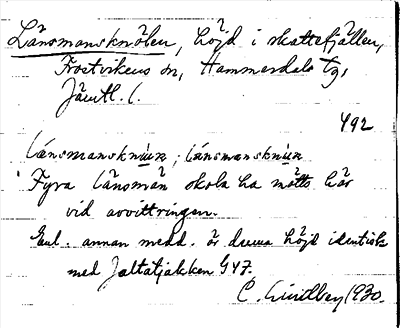 Länsmansknölen, höjd i skattefjällen,
Frostvikens sn, Hammerdals tg,
Jämtl. l.
492
länsmansknùun ; länsmansknùun
Fyra länsmän skola ha mötts här
vid avvittringen.
Enl. annan medd. är denna höjd identisk
med Jaltatjakken 947.
C. Lindberg 1930.